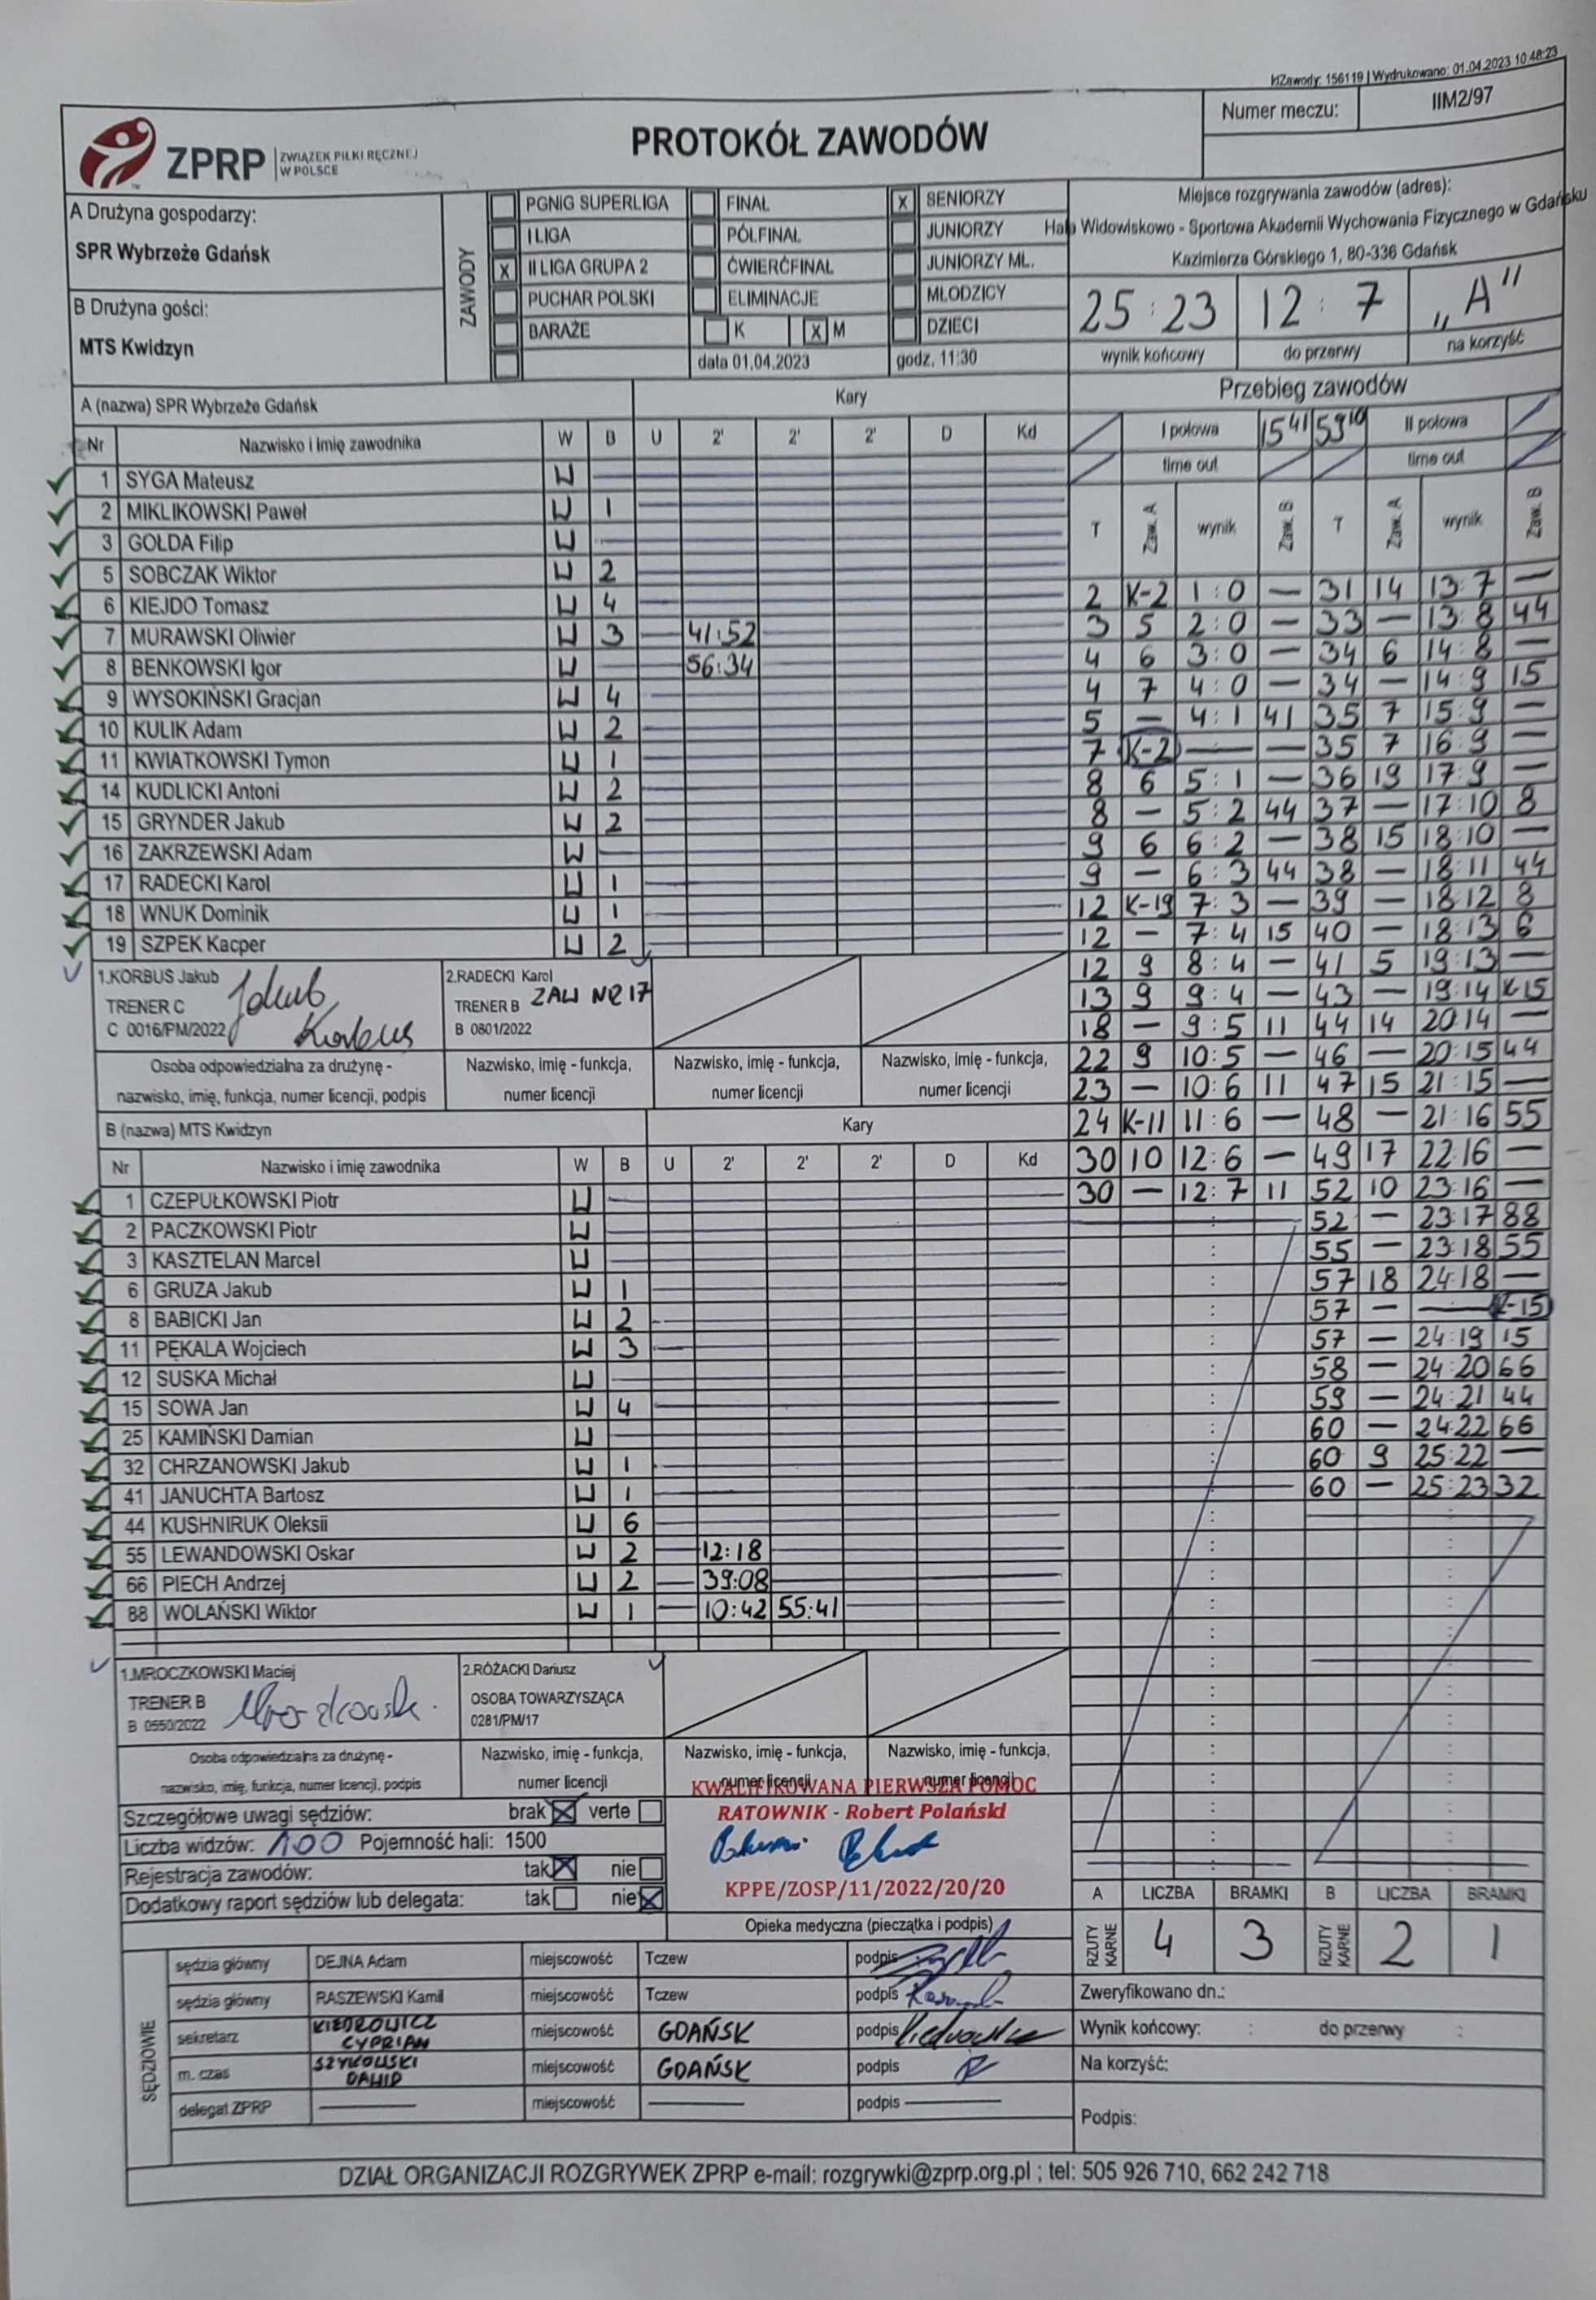 IdZawody: 156119 | Wydrukowano: 01.04.2023 10:48:23
ZPRP ZWIĄZEK PIŁKI RĘCZNEJ W POLSCE
PROTOKÓŁ ZAWODÓW
Numer meczu: IIM2/97
A Drużyna gospodarzy:
SPR Wybrzeże Gdańsk
B Drużyna gości:
MTS Kwidzyn
ZAWODY
PGNiG SUPERLIGA FINAŁ X SENIORZY
I LIGA PÓŁFINAŁ JUNIORZY
X II LIGA GRUPA 2 ĆWIERĆFINAŁ JUNIORZY MŁ.
PUCHAR POLSKI ELIMINACJE MŁODZICY
BARAŻE K X M DZIECI
data 01.04.2023 godz. 11:30
Miejsce rozgrywania zawodów (adres):
Hala Widowiskowo - Sportowa Akademii Wychowania Fizycznego w Gdańsku
Kazimierza Górskiego 1, 80-336 Gdańsk
25:23 12:7 „A"
wynik końcowy do przerwy na korzyść
A (nazwa) SPR Wybrzeże Gdańsk Kary
Nr Nazwisko i imię zawodnika W B U 2' 2' 2' D Kd
1 SYGA Mateusz W
2 MIKLIKOWSKI Paweł W 1
3 GOLDA Filip W
5 SOBCZAK Wiktor W 2
6 KIEJDO Tomasz W 4
7 MURAWSKI Oliwier W 3 41:52
8 BENKOWSKI Igor W 56:34
9 WYSOKIŃSKI Gracjan W 4
10 KULIK Adam W 2
11 KWIATKOWSKI Tymon W 1
14 KUDLICKI Antoni W 2
15 GRYNDER Jakub W 2
16 ZAKRZEWSKI Adam W
17 RADECKI Karol W 1
18 WNUK Dominik W 1
19 SZPEK Kacper W 2
1.KORBUS Jakub
TRENER C
C 0016/PM/2022
Jakub Korbus
2.RADECKI Karol
TRENER B ZAW NR 17
B 0801/2022
Osoba odpowiedzialna za drużynę - nazwisko, imię, funkcja, numer licencji, podpis
Nazwisko, imię - funkcja, numer licencji
Nazwisko, imię - funkcja, numer licencji
Nazwisko, imię - funkcja, numer licencji
B (nazwa) MTS Kwidzyn Kary
Nr Nazwisko i imię zawodnika W B U 2' 2' 2' D Kd
1 CZEPUŁKOWSKI Piotr W
2 PACZKOWSKI Piotr W
3 KASZTELAN Marcel W
6 GRUZA Jakub W 1
8 BABICKI Jan W 2
11 PĘKALA Wojciech W 3
12 SUSKA Michał W
15 SOWA Jan W 4
25 KAMIŃSKI Damian W
32 CHRZANOWSKI Jakub W 1
41 JANUCHTA Bartosz W 1
44 KUSHNIRUK Oleksii W 6
55 LEWANDOWSKI Oskar W 2 12:18
66 PIECH Andrzej W 2 39:08
88 WOLAŃSKI Wiktor W 1 10:42 55:41
1.MROCZKOWSKI Maciej
TRENER B
B 0550/2022
2.RÓŻACKI Dariusz
OSOBA TOWARZYSZĄCA
0281/PM/17
Osoba odpowiedzialna za drużynę - nazwisko, imię, funkcja, numer licencji, podpis
Nazwisko, imię - funkcja, numer licencji
Nazwisko, imię - funkcja, numer licencji
Nazwisko, imię - funkcja, numer licencji
Przebieg zawodów
I połowa 15 41 59 10 II połowa
time out time out
T Zaw. A wynik Zaw. B T Zaw. A wynik Zaw. B
2 K-2 1:0 — 31 14 13:7 —
3 5 2:0 — 33 — 13:8 44
4 6 3:0 — 34 6 14:8 —
4 7 4:0 — 34 — 14:9 15
5 — 4:1 41 35 7 15:9 —
7 K-2 — — 35 7 16:9 —
8 6 5:1 — 36 19 17:9 —
8 — 5:2 44 37 — 17:10 8
9 6 6:2 — 38 15 18:10 —
9 — 6:3 44 38 — 18:11 44
12 K-19 7:3 — 39 — 18:12 8
12 — 7:4 15 40 — 18:13 6
12 9 8:4 — 41 5 19:13 —
13 9 9:4 — 43 — 19:14 K-15
18 — 9:5 11 44 14 20:14 —
22 9 10:5 — 46 — 20:15 44
23 — 10:6 11 47 15 21:15 —
24 K-11 11:6 — 48 — 21:16 55
30 10 12:6 — 49 17 22:16 —
30 — 12:7 11 52 10 23:16 —
52 — 23:17 88
55 — 23:18 55
57 18 24:18 —
57 — — K-15
57 — 24:19 15
58 — 24:20 66
59 — 24:21 44
60 — 24:22 66
60 9 25:22 —
60 — 25:23 32
Szczegółowe uwagi sędziów: brak X verte
Liczba widzów: 100 Pojemność hali: 1500
Rejestracja zawodów: tak X nie
Dodatkowy raport sędziów lub delegata: tak nie X
KWALIFIKOWANA PIERWSZA POMOC
RATOWNIK - Robert Polański
KPPE/ZOSP/11/2022/20/20
Opieka medyczna (pieczątka i podpis)
A LICZBA BRAMKI B LICZBA BRAMKI
RZUTY KARNE 4 3 RZUTY KARNE 2 1
SĘDZIOWIE
sędzia główny DEJNA Adam miejscowość Tczew podpis
sędzia główny RASZEWSKI Kamil miejscowość Tczew podpis
sekretarz KIEDROWICZ CYPRIAN miejscowość GDAŃSK podpis
m. czas SZYKOWSKI DAWID miejscowość GDAŃSK podpis
delegat ZPRP — miejscowość — podpis —
Zweryfikowano dn.:
Wynik końcowy: : do przerwy :
Na korzyść:
Podpis:
DZIAŁ ORGANIZACJI ROZGRYWEK ZPRP e-mail: rozgrywki@zprp.org.pl ; tel: 505 926 710, 662 242 718